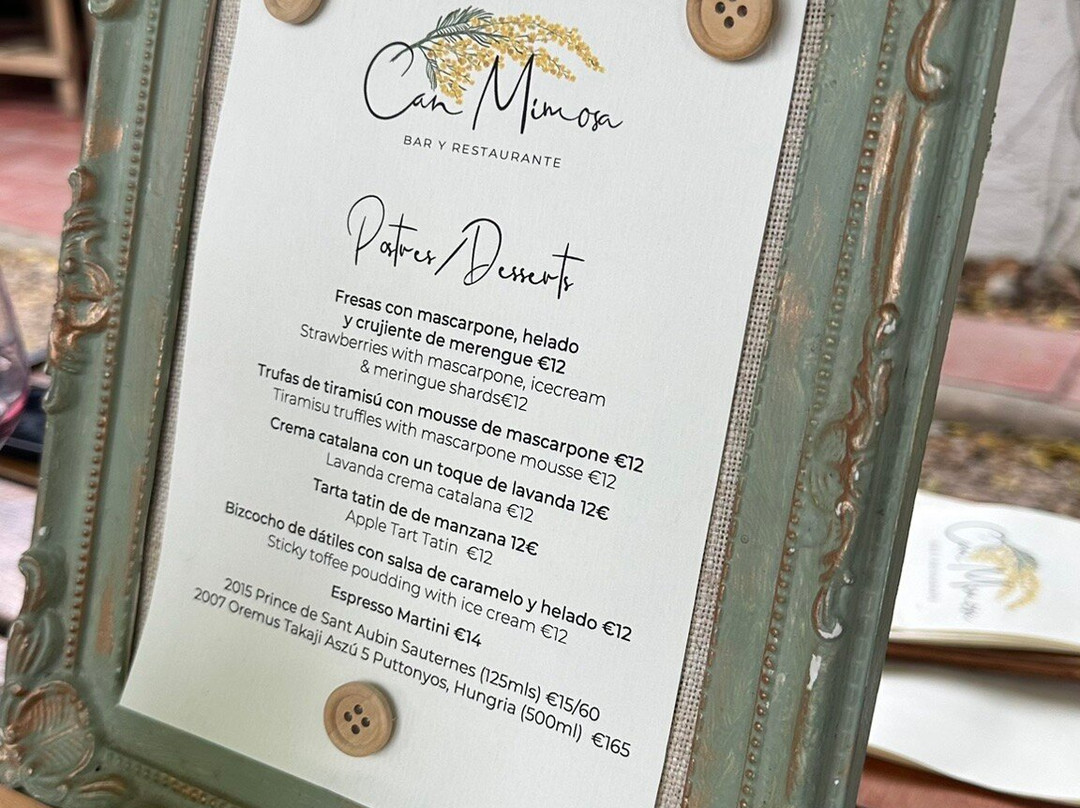 Can Mimosa
BAR Y RESTAURANTE
Postres/Desserts
Fresas con mascarpone, helado
y crujiente de merengue €12
Strawberries with mascarpone, icecream
& meringue shards€12
Trufas de tiramisú con mousse de mascarpone €12
Tiramisu truffles with mascarpone mousse €12
Crema catalana con un toque de lavanda 12€
Lavanda crema catalana €12
Tarta tatin de de manzana 12€
Apple Tart Tatin €12
Bizcocho de dátiles con salsa de caramelo y helado €12
Sticky toffee poudding with ice cream €12
Espresso Martini €14
2015 Prince de Sant Aubin Sauternes (125mls) €15/60
2007 Oremus Takaji Aszú 5 Puttonyos, Hungria (500ml) €165
Can Mimosa